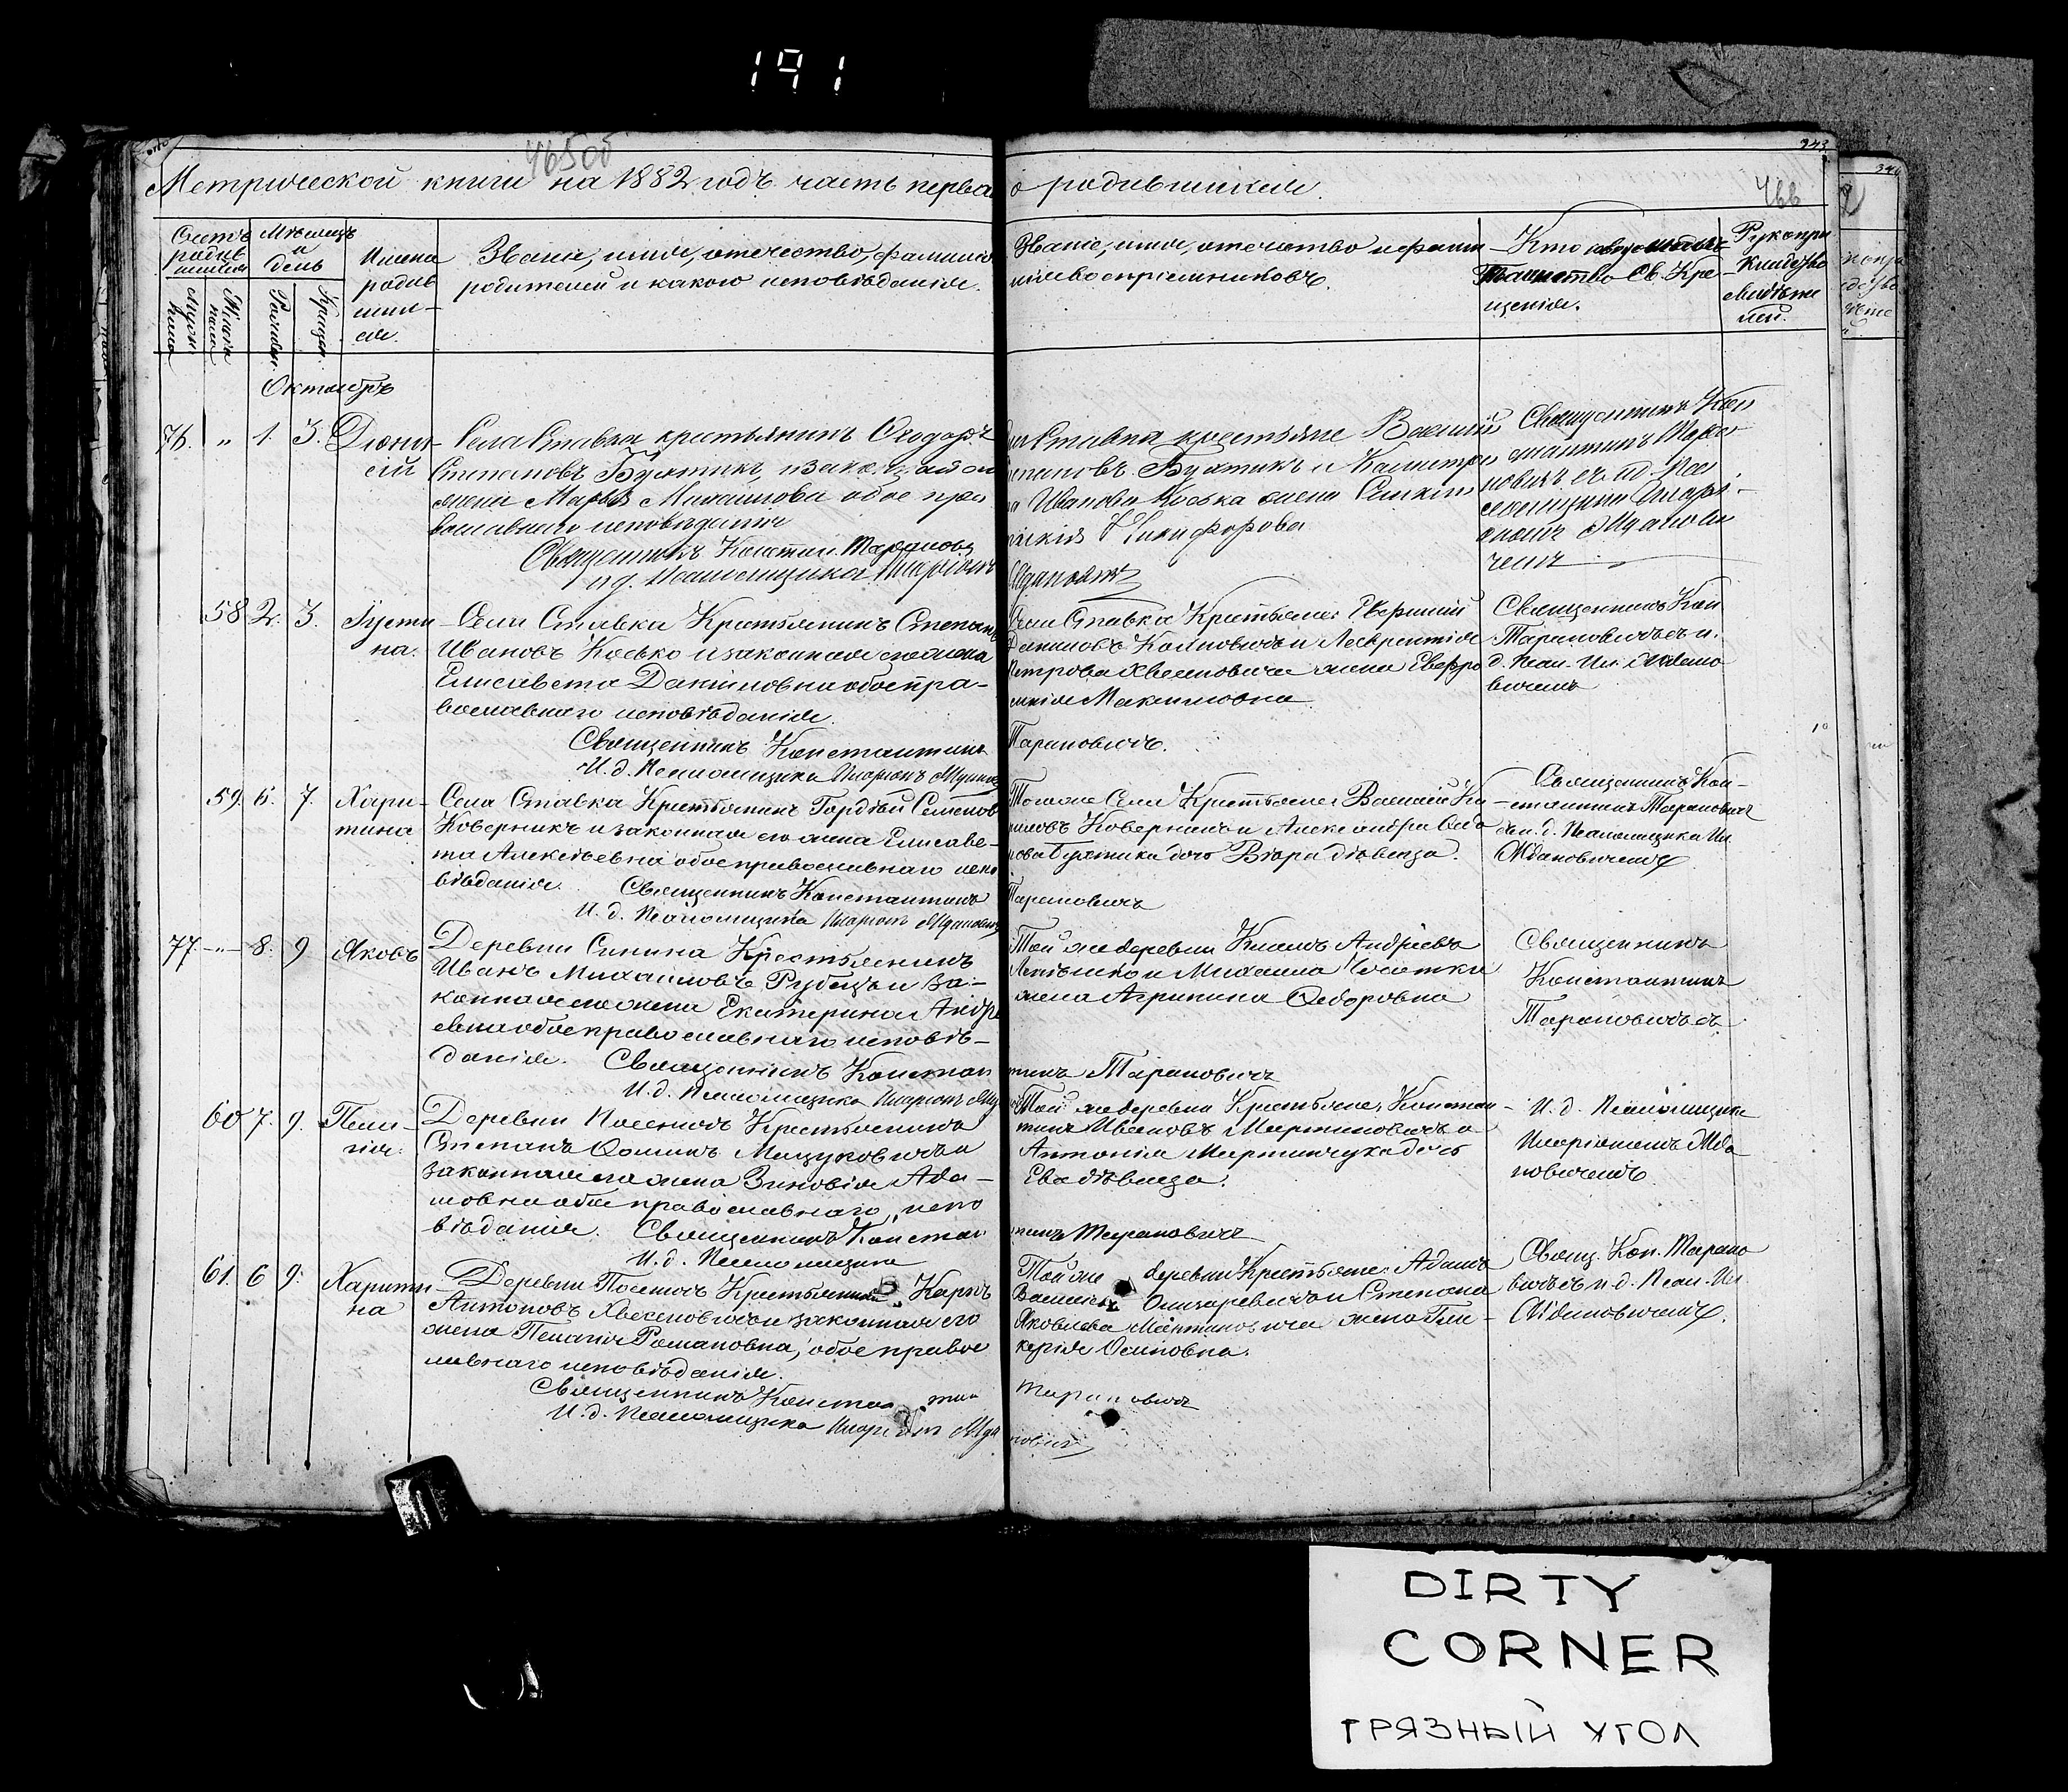 191
465об
343
344
466
Метрической книги на 1882 годъ часть перва о родившихся.
Счетъ родив шихся
Мужеска
Женска
Мѣсяцъ и день
Рожден.
Крещен.
Имена родив шихся.
Званіе, имя, отечество, фамилія
родителей и какого исповѣданія.
Званіе, имя, отечество и фами
лія воспріемниковъ.
Кто совершалъ
Таинство Св. Кре
щенія.
Рукопри
кладство
свидѣте
лей.
Октябрь
76. " 1. 3. Діони
сій
Села Ставка крестьянинъ Ѳеодоръ
Степановъ Бухтикъ, и закон. его
жена Марія Михайлова обое пра
вославнаго исповѣданія
Священникъ Констан. Тарановичъ
и д. Псаломщика Иларіонъ Ждановичъ
Ставка крестьяне Василій
Степановъ Бухтикъ и
Иванова Коська жена
Никифорова
Священникъ Кон
стантинъ Тара
новичъ съ и д. Пса
ломщика Иларі
ономъ Ждановичемъ
58 2. 3. Іусти
на.
Села Ставка Крестьянинъ Степанъ
Ивановъ Косько и законная его жена
Елисавета Даниловна обое пра-
вославнаго исповѣданія.
Священникъ Константинъ Тарановичъ.
И. д. Псаломщика Иларіонъ Ждановичъ
Села Ставка Крестьяне:
Даниловъ и Лаврентія
Петрова жена Евфро
синія Максимовна
Священникъ Кон
Тарановичъ съ и.
д. Псал. Ил. Ждано
вичемъ
59. 6. 7. Хари-
тина
Села Ставка Крестьянинъ Гордѣй Семенов
Коверникъ и законная его жена Елисаве-
та Алексѣевна обое православнаго испо
вѣданія.
Священникъ Константинъ Тарановичъ
И. д. Псаломщика Иларіонъ Ждановичъ
Того же Села Крестьяне: Василій
Коверникъ и Александра
Бухтика дочь Вѣра дѣвица.
Священникъ Кон-
стантинъ Тарановичъ
съ и. д. Псаломщика Ил.
Ждановичемъ
77. - " - 8. 9 Яковъ
Деревни Синина Крестьянинъ
Иванъ Михайловъ Рубецъ и за-
конная его жена Екатерина Андре
евна обое православнаго исповѣ-
данія.
Священникъ Констан тинъ Тарановичъ
И. д. Псаломщика Иларіонъ Жд
Той же деревни Климъ Андреевъ
и Михаила
жена Агрипина Ѳедоровна
Священникъ
Константинъ
Тарановичъ съ
60 7. 9. Пела-
гія.
Деревни Посничъ Крестьянинъ
Степанъ Ѳоминъ Мацуковичъ и
законная его жена Зиновія Ада-
мовна обое православнаго испо
вѣданія.
Священникъ Констан тинъ Тарановичъ
И. д. Псаломщика
Той же деревни Крестьяне: Констан-
тинъ Ивановъ Мартиновичъ и
Антонія Мартинчука дочь
Ева дѣвица.
И. д. Псаломщика
Иларіономъ Жда
новичемъ.
61. 6 9. Харити
на
Деревни Посничъ Крестьянинъ Карпъ
Антоновъ Хвесеновичъ и законная его
жена Пелагія Романовна, обое право
славнаго исповѣданія.
Священникъ Констан тин Тарановичъ
И. д. Псаломщика Иларіонъ Ждановичъ
Той же деревни Крестьяне: Адамъ
Васильевъ Олизаревичъ и Степана
Яковлева Мартиновича жена Гли-
керія Осиповна.
Свящ. Кон. Тарано
вичъ съ и д. Псал. Ил.
Ждановичемъ.
DIRTY
CORNER
ГРЯЗНЫЙ УГОЛ